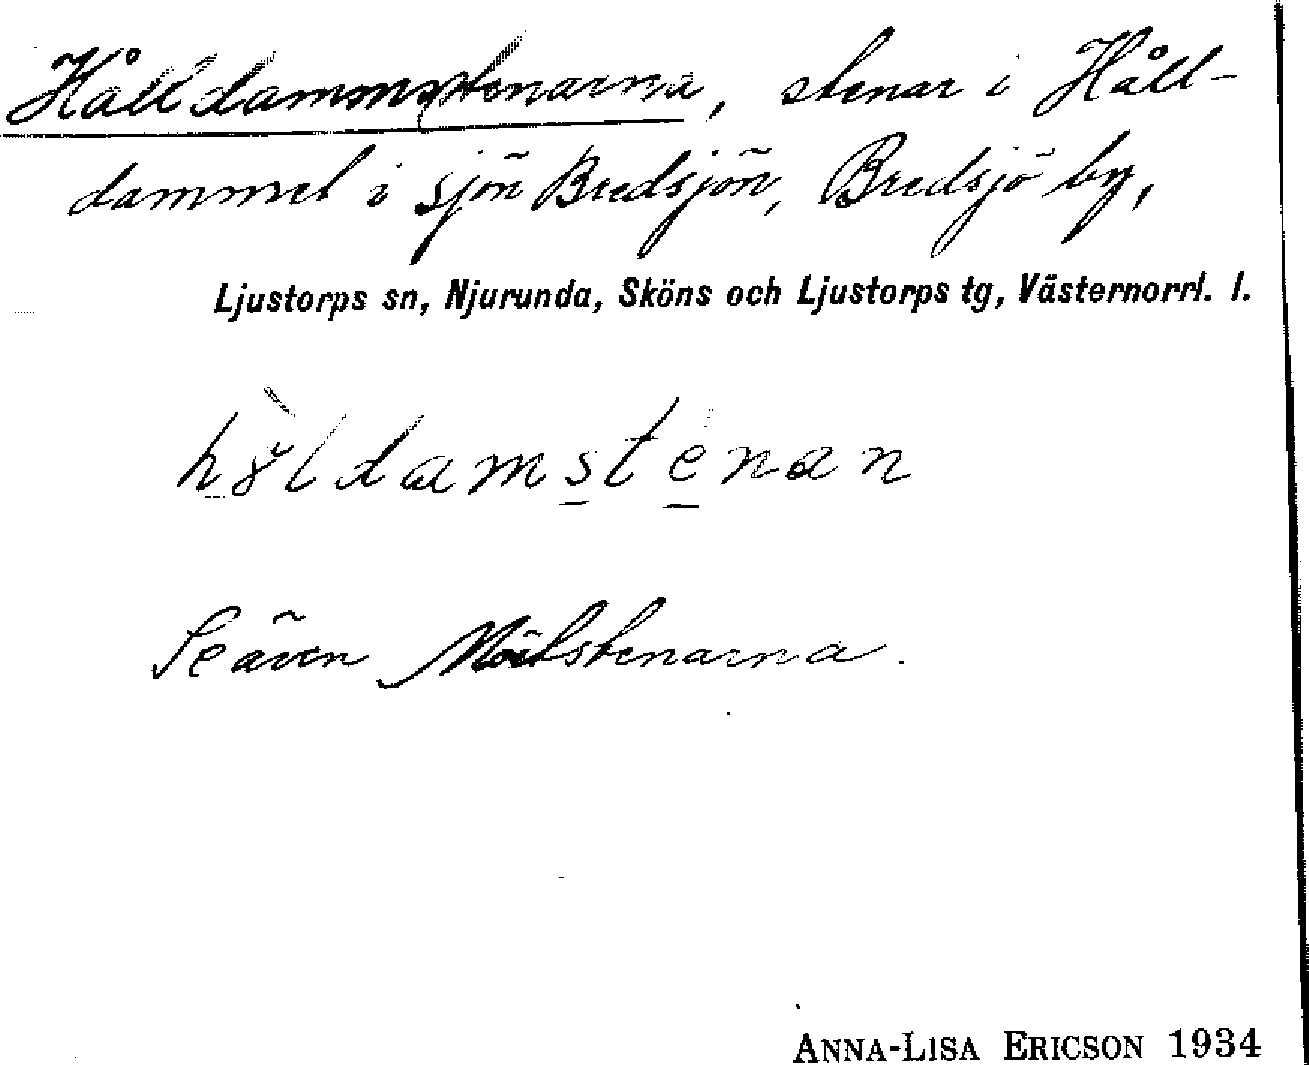 Hålldammstenarna, stenar i Håll-
dammet i sjön Bredsjön, Bredsjö by,
Ljustorps sn, Njurunda, Sköns och Ljustorps tg, Västernorrl. l.
stenan
Se även
ANNA-LISA ERICSON 1934